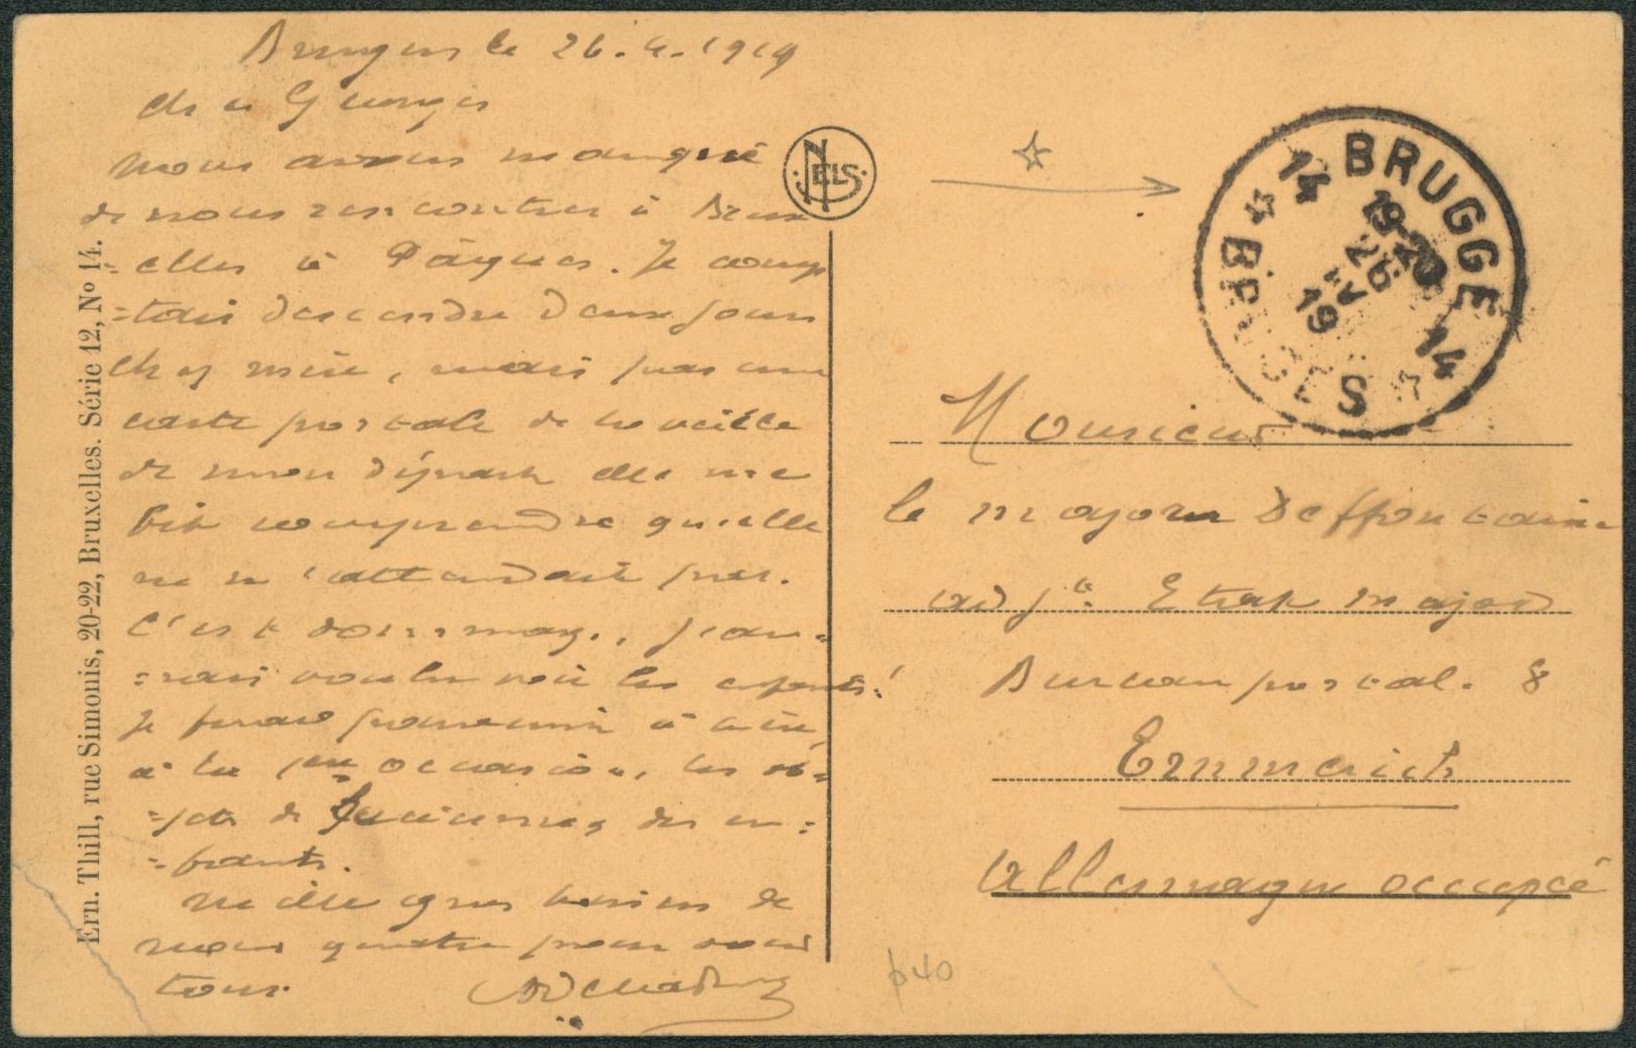 Bruges le 26.4.1919
Chers Georges
Nous avons manqué
de nous rencontrer à Brux
=elles à Pâques. Je comp
=tais descendre deux jours
chez mère, mais par une
carte postale de la veille
de mon départ elle me
fit comprendre qu'elle
ne m'attendait pas.
C'est dommage, j'au=
=rais voulu voir les enfants!
Je ferai parvenir à mère
à la 1ère occasion, les ob=
=jets de des en=
=fants.
Mille gros baisers de
nous quatre pour vous
tous.
NELS
Ern. Thill, rue Simonis, 20-22, Bruxelles. Série 12, No 14.
14 BRUGGE 14
19-20
26
IV
19
BRUGES
Monsieur
le major Deffontaine
adjt. Etat major
Bureau postal. 8
Emmerich
Allemagne occupée
p40